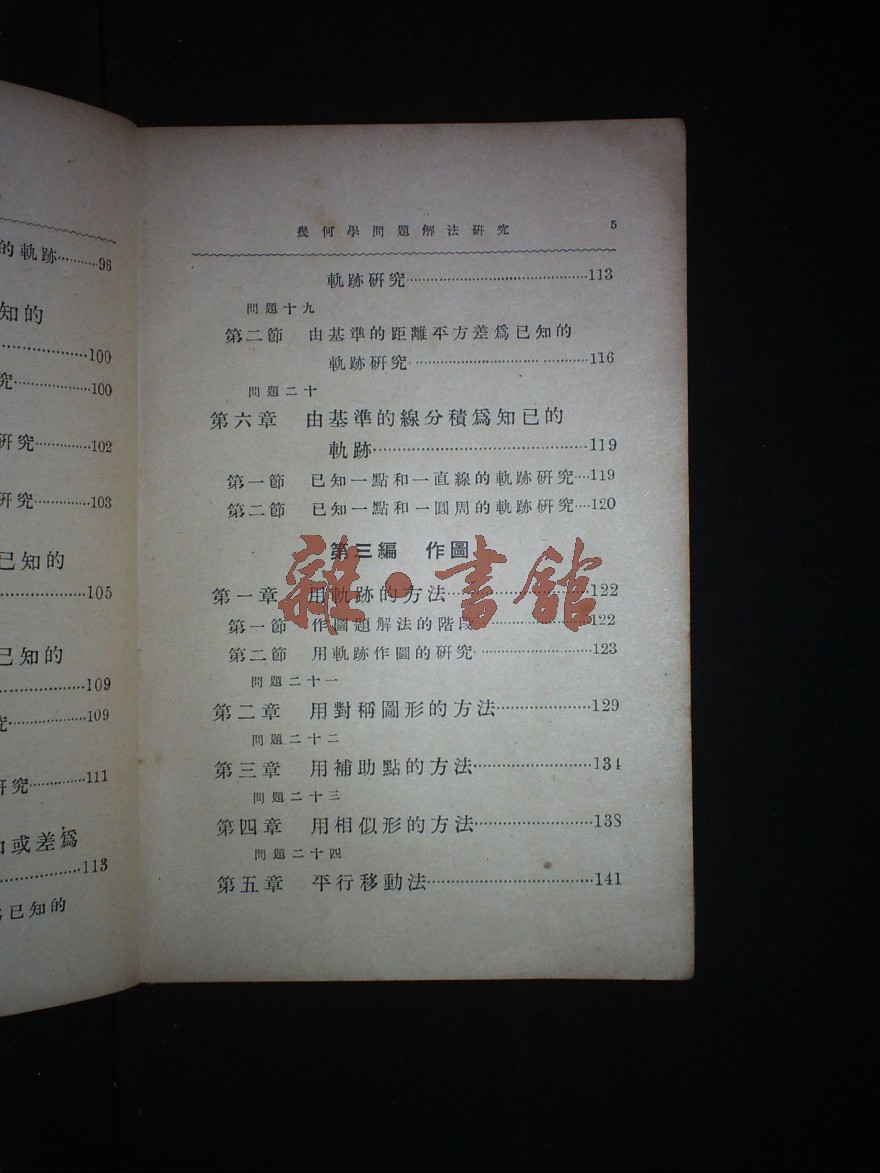 的軌跡…………96
知的
…………100
究…………100
研究…………102
研究…………103
已知的
…………105
已知的
…………109
究…………109
研究…………111
和或差爲
…………113
已知的
幾何學問題解法研究 5
軌跡研究…………113
問題十九
第二節 由基準的距離平方差爲已知的
軌跡研究…………116
問題二十
第六章 由基準的線分積爲知已的
軌跡…………119
第一節 已知一點和一直線的軌跡研究…119
第二節 已知一點和一圓周的軌跡研究…120
第三編 作圖
第一章 用軌跡的方法…………122
第一節 作圖題解法的階段…………122
第二節 用軌跡作圖的研究…………123
問題二十一
第二章 用對稱圖形的方法…………129
問題二十二
第三章 用補助點的方法…………134
問題二十三
第四章 用相似形的方法…………138
問題二十四
第五章 平行移動法…………141
雜·書館